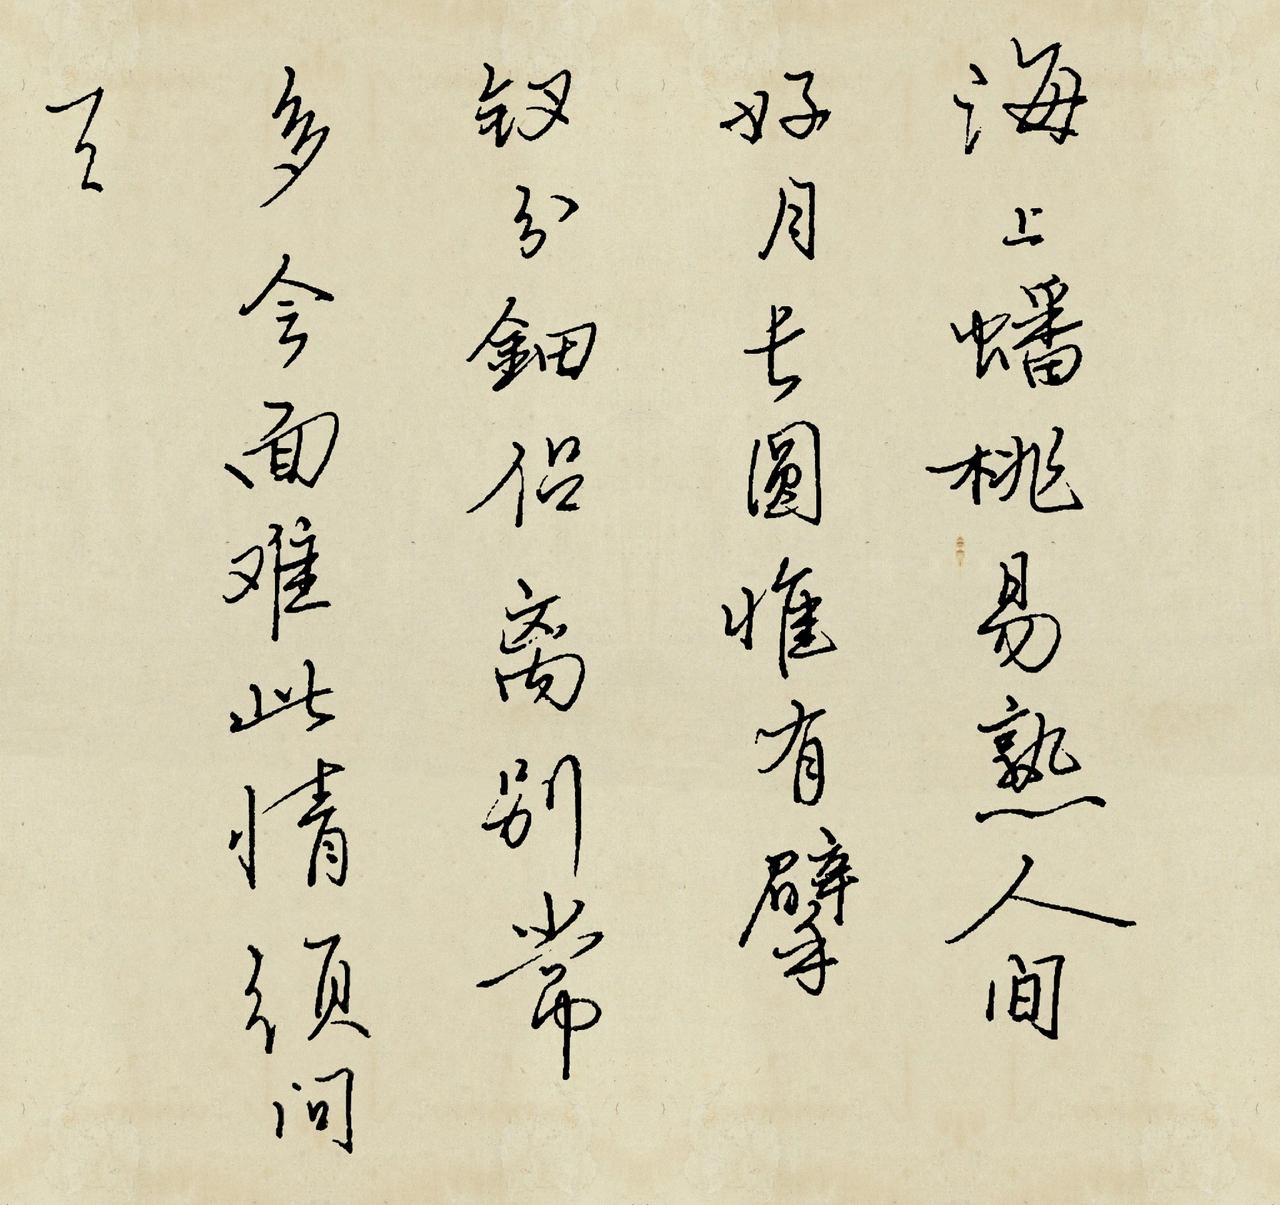 海上蟠桃易熟人间
好月长圆惟有擘
钗分钿侣离别常
多会面难此情须问
天